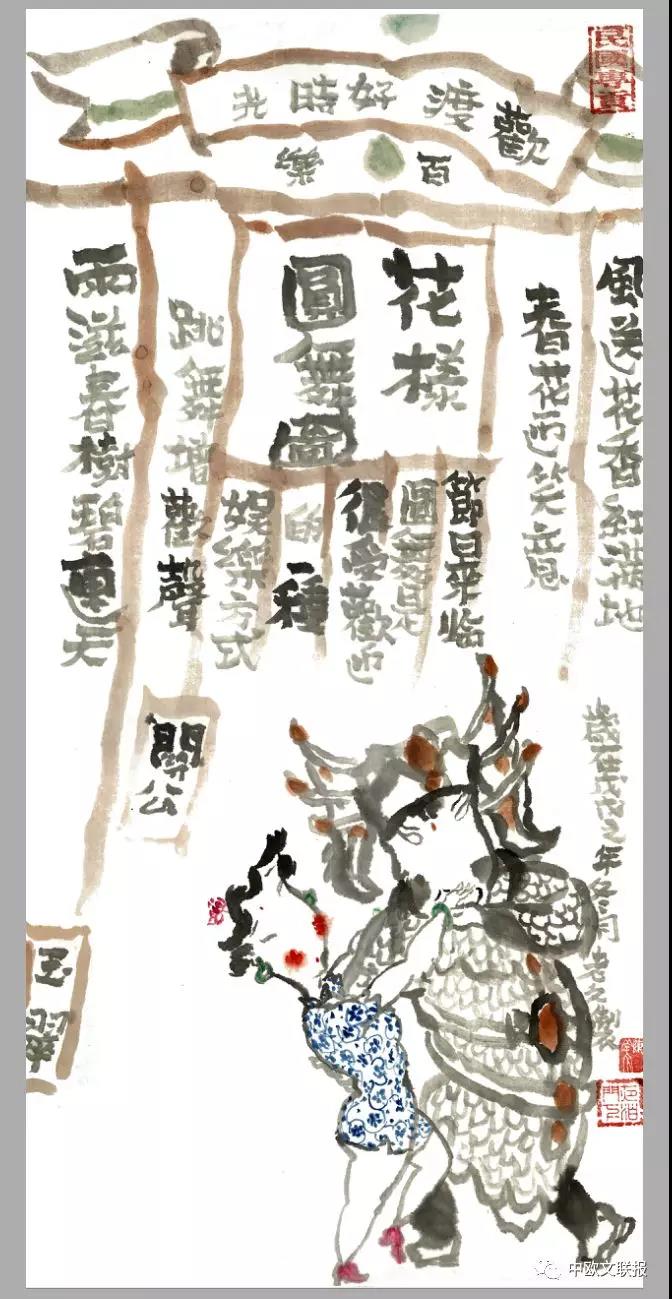 歡渡好時光
百樂
風送花香紅滿地
春花迎笑意
花樣
圓舞圖
跳舞增歡聲
雨滋春樹碧連天
節日來臨
圓舞是
很受歡迎
的一種
娛樂方式
關公
玉
歲在戊戌之年冬月
製
中欧文联报